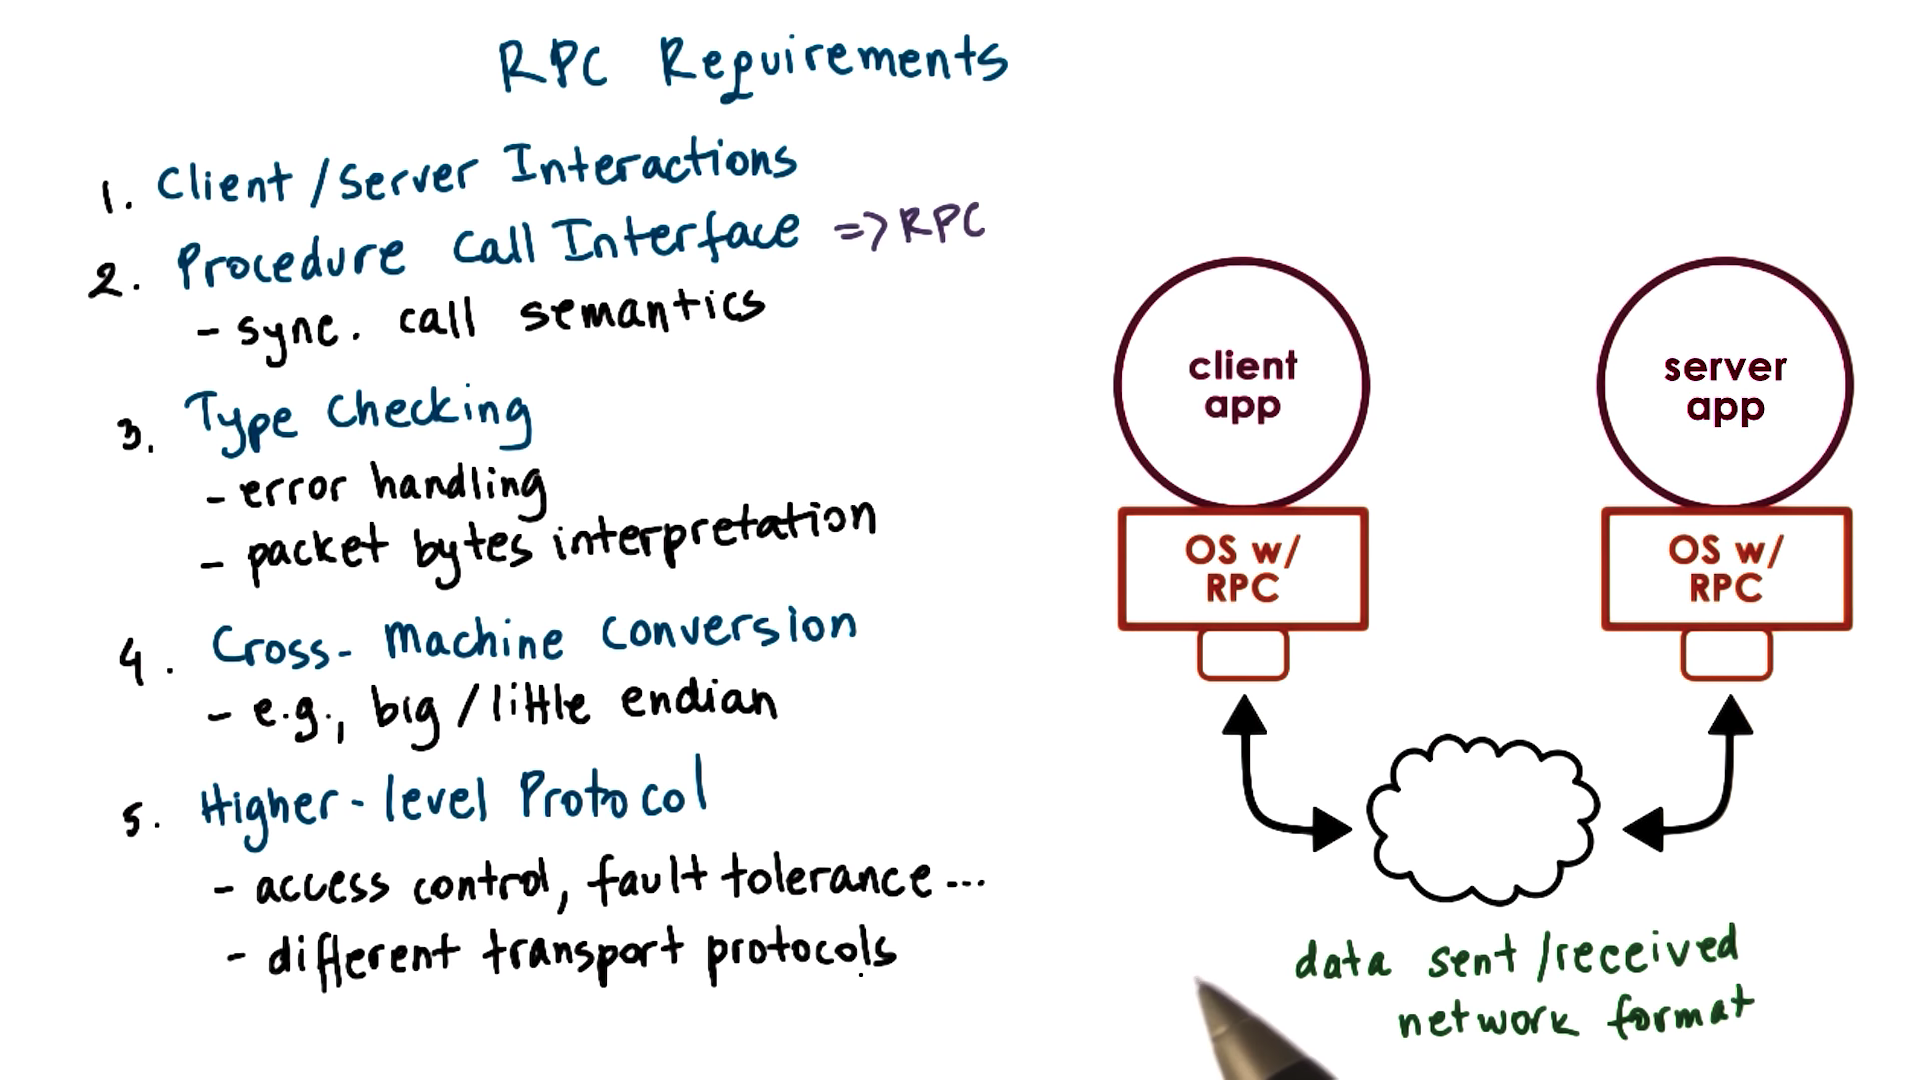 RPC Requirements
1. Client/Server Interactions
2. Procedure Call Interface => RPC
- sync. call semantics
3. Type Checking
- error handling
- packet bytes interpretation
4. Cross-Machine Conversion
- e.g., big/little endian
5. Higher-level Protocol
- access control, fault tolerance...
- different transport protocols
client
app
server
app
OS w/
RPC
OS w/
RPC
data sent/received
network format